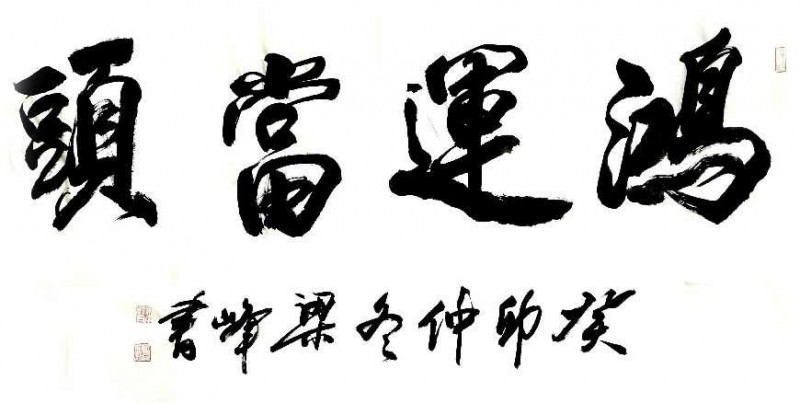 鴻運當頭
癸卯仲冬梁峰書